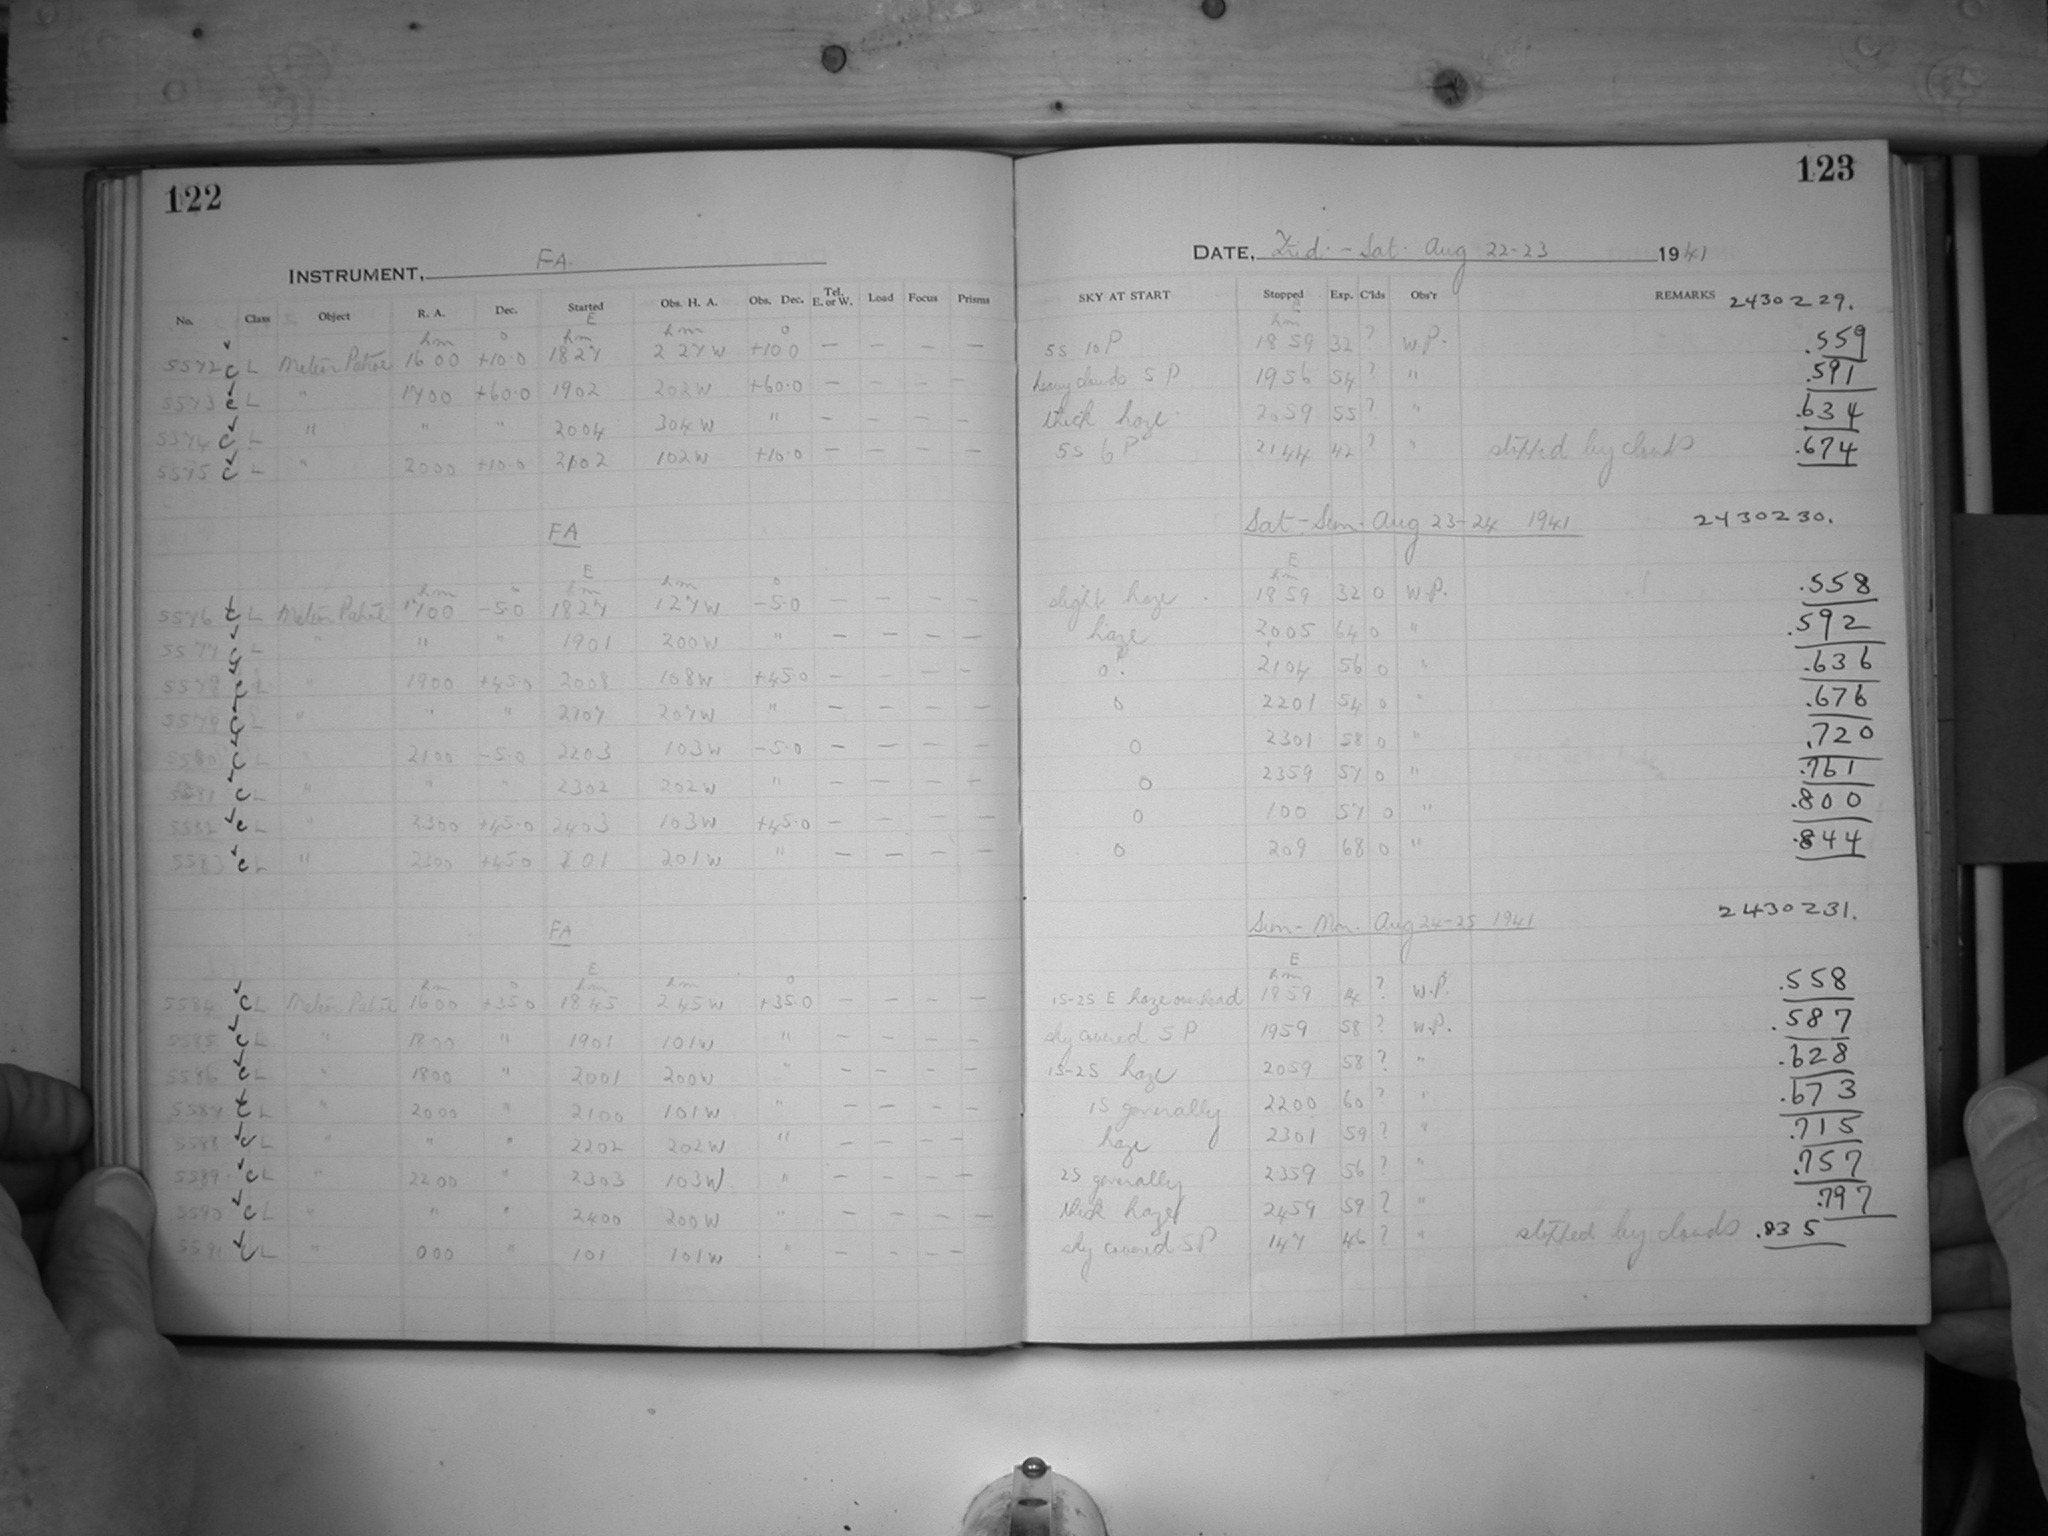 122
INSTRUMENT, FA
No. Class Object R. A. Dec. Started Obs. H. A. Obs. Dec. Tel. E. or W. Load Focus Prisms
hm o E hm hm o
5572 c L Meteor Patrol 1600 +10.0 1827 227W +10.0 — — — —
5573 c L " 1700 +60.0 1902 202W +60.0 — — — —
5574 c L " " " 2004 304W " — — — —
5575 c L " 2000 +10.0 2102 102W +10.0 — — — —
FA
hm o E hm hm o
5576 t L Meteor Patrol 1700 -5.0 1827 127W -5.0 — — — —
5577 c L " " " 1901 200W " — — — —
5578 c L " 1900 +45.0 2008 108W +45.0 — — — —
5579 c L " " " 2107 207W " — — — —
5580 c L " 2100 -5.0 2203 103W -5.0 — — — —
5581 c L " " " 2302 202W " — — — —
5582 c L " 2300 +45.0 2403 103W +45.0 — — — —
5583 c L " 2300 +45.0 101 201W " — — — —
FA
hm o E hm hm o
5584 c L Meteor Patrol 1600 +35.0 1845 245W +35.0 — — — —
5585 c L " 1800 " 1901 101W " — — — —
5586 c L " 1800 " 2001 200W " — — — —
5587 t L " 2000 " 2100 101W " — — — —
5588 c L " " " 2202 202W " — — — —
5589 c L " 2200 " 2303 103W " — — — —
5590 c L " " " 2400 200W " — — — —
5591 c L " 000 " 101 101W " — — — —
123
DATE, Frid. - Sat. Aug 22-23 1941
SKY AT START Stopped Exp. C'lds Obs'r REMARKS 2430229.
E hm
5s 10P 1859 32 ? W.P. .559
heavy clouds 5P 1956 54 ? " .591
thick haze 2059 55 ? " .634
5s 6P 2144 42 ? " stopped by clouds .674
Sat-Sun. Aug 23-24 1941 2430230.
E hm
slight haze 1859 32 0 W.P. .558
haze 2005 64 0 " .592
0. 2104 56 0 " .636
0 2201 54 0 " .676
0 2301 58 0 " .720
0 2359 57 0 " .761
0 100 57 0 " .800
0 209 68 0 " .844
Sun-Mon. Aug 24-25 1941 2430231.
E hm
1S-2S E haze overhead 1859 14 ? W.P. .558
sky covered 5P 1959 58 ? W.P. .587
1S-2S haze 2059 58 ? " .628
1S generally 2200 60 ? " .673
haze 2301 59 ? " .715
2S generally 2359 56 ? " .757
thick haze 2459 59 ? " .797
sky covered 5P 147 46 ? " stopped by clouds .835